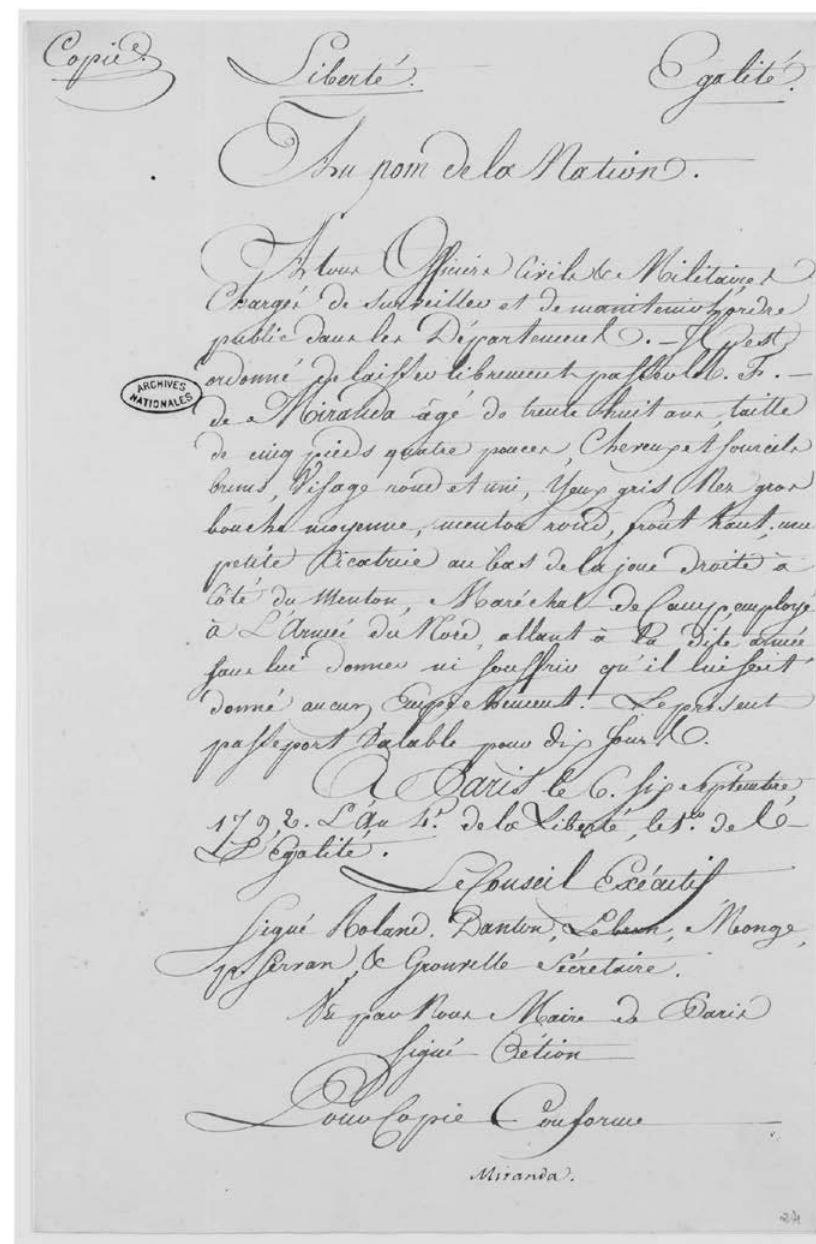 Copie.
Liberté.
Egalité.
Au nom de la Nation.
A tous Officiers Civils & Militaires
Chargés de surveiller et de maintenir l'ordre
public dans les Départements. — Il est
ordonné de laisser librement passer M. F. —
de Miranda âgé de trente huit ans, taille
de cinq pieds quatre pouces, Cheveux et sourcils
bruns, Visage rond et uni, Yeux gris Nez gros
bouche moyenne, menton rond, front haut, une
petite Cicatrice au bas de la joue droite à
Côté du Menton, Maréchal de Camp, employé
à L'Armée du Nord, allant à la dite armée
sans lui donner ni souffrir qu'il lui soit
donné aucun Empechement. Le présent
passeport Valable pour dix jours.
A Paris le 6. six Septembre
1792. L'An 4e. de la Liberté, le 1er. de
L'Egalité.
Le Conseil Exécutif
signé Roland, Danton, Lebrun, Monge,
Servan, & Grouvelle Sécretaire.
Vu par Nous Maire de Paris
signé Pétion
Pour Copie Conforme
Miranda.
ARCHIVES
NATIONALES